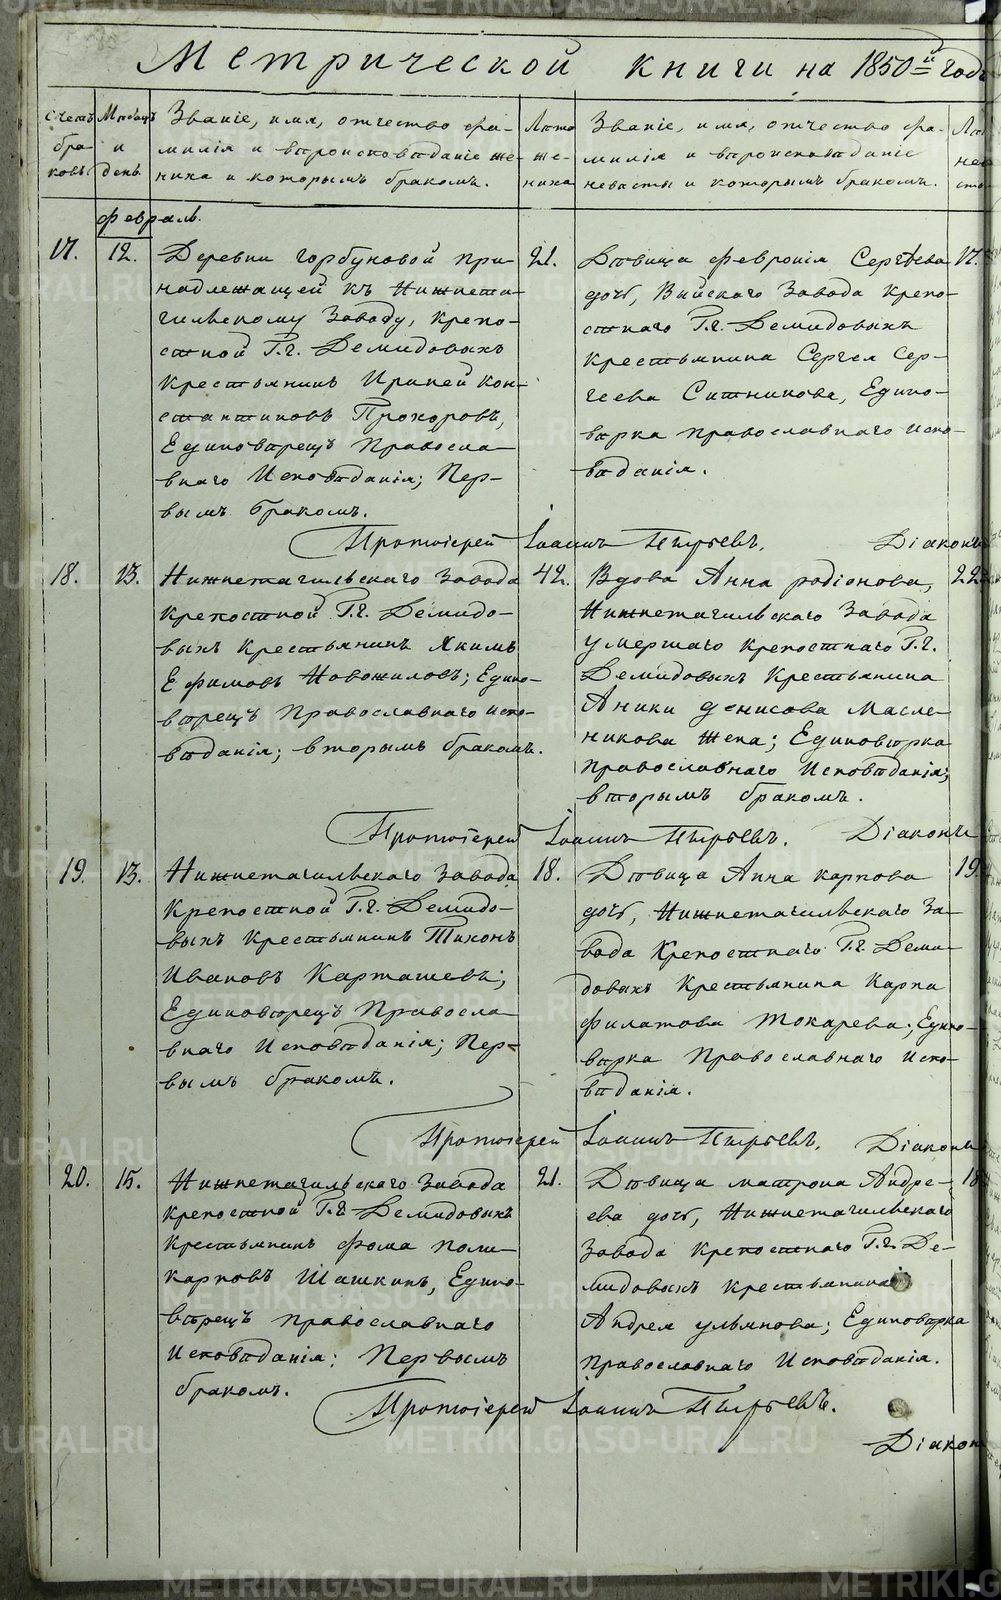 Метрической книги на 1850й годъ
Счетъ браковъ
Мѣсяцъ и день
Званіе, имя, отчество фа-
милія и вѣроисповѣданіе же-
ниха и которымъ бракомъ.
Лѣта же-
ниха
Званіе, имя, отчество фа-
милія и вѣроисповѣданіе
невѣсты и которымъ бракомъ.
Февраль.
17. 12.
Деревни Горбуновой при-
надлежащей къ Нижнета-
гильскому Заводу, крепо-
стной Г.г. Демидовыхъ
крестьянинъ Ириней Кон-
стантиновъ Прохоровъ,
Единовѣрецъ Правосла-
внаго Исповѣданія; Пер-
вымъ бракомъ.
21.
Дѣвица Феврония Сергѣева
дочь, Выйскаго Завода крепо-
стнаго Г.г. Демидовыхъ
крестьянина Сергея Сер-
геева Ситникова, Едино-
вѣрка православнаго испо-
вѣданія.
17.
Протоіерей Іоаннъ Пырьевъ. Діаконъ
18. 13.
Нижнетагильскаго Завода
крепостной Г.г. Демидо-
выхъ Крестьянинъ Якимъ
Ефимовъ Новожиловъ; Едино-
вѣрецъ Православнаго испо-
вѣданія; вторымъ бракомъ.
42.
Вдова Анна родіонова,
Нижнетагильскаго Завода
умершаго крепостнаго Г.г.
Демидовыхъ Крестьянина
Аники Денисова Масле-
никова жена; Единовѣрка
православнаго Исповѣданія;
вторымъ бракомъ.
22
Протоіерей Іоаннъ Пырьевъ. Діаконъ
19. 13.
Нижнетагильскаго Завода
Крепостной Г.г. Демидо-
выхъ крестьянинъ Тихонъ
Ивановъ Карташевъ;
Единовѣрецъ Правосла-
внаго Исповѣданія; Пер-
вымъ бракомъ.
18.
Дѣвица Анна карпова
дочь, Нижнетагильскаго За-
вода Крепостнаго Г.г. Деми-
довыхъ Крестьянина Карпа
Филатова Токарева; Едино-
вѣрка Православнаго испо-
вѣданія.
19
Протоіерей Іоаннъ Пырьевъ. Діаконъ
20. 15.
Нижнетагильскаго Завода
крепостной Г.г. Демидовыхъ
Крестьянинъ Фома Поли-
карповъ Шашкинъ, Едино-
вѣрецъ православнаго
Исповѣданія; Первымъ
бракомъ.
21.
Дѣвица матрона Андре-
ева дочь, Нижнетагильскаго
Завода крепостнаго Г.г. Де-
мидовыхъ крестьянина
Андрея ульянова; Единовѣрка
православнаго Исповѣданія.
18
Протоіерей Іоаннъ Пырьевъ.
Діакон
METRIKI.GASO-URAL.RU